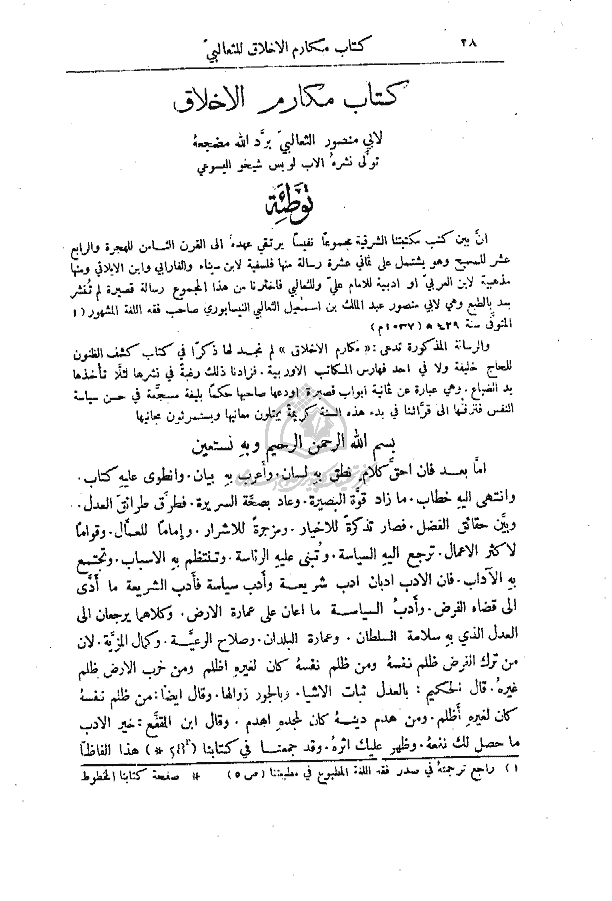 ٢٨ كتاب مكارم الاخلاق للثعالبيّ
كتاب مكارم الاخلاق
لابي منصور الثعالبيّ برَّد الله مضجعهُ
تولَّى نشرهُ الاب لويس شيخو اليسوعي
توطئة
انَّ بين كتب مكتبتنا الشرقية مجموعًا نفيسًا يرتقي عهدهُ الى القرن الثامن للهجرة والرابع
عشر للمسيح وهو يشتمل على ثماني عشرة رسالة منها فلسفية لابن سيناء والفارابي وابن الابلاقي ومنها
مذهبية لابن العربيّ او ادبية للامام عليّ وللثعالبي فاخترنا من هذا المجموع رسالة قصيرة لم تُنشَر
بعد بالطبع وهي لابي منصور عبد الملك بن اسمعيل الثعالبي النيسابوري صاحب فقه اللغة المشهور (١
المتوفَّى سنة ٤٢٩ هـ (١٠٣٧م)
والرسالة المذكورة تدعى: « مكارم الاخلاق » لم نجد لها ذكرًا في كتاب كشف الظنون
للحاج خليفة ولا في احد فهارس المكاتب الاوربية. فزادنا ذلك رغبةً في نشرها لئلَّا تأخذها
يد الضياع. وهي عبارة عن ثمانية ابواب قصيرة اودعها صاحبها حكمًا بليغة مسجَّعة في حسن سياسة
النفس فنزفها الى قرَّائنا في بدء هذه السنة كريمةً يتملون معانيها ويستمرئون مجانيها
بسم الله الرحمن الرحيم وبهِ نستعين
امَّا بعد فان احقّ كلام. نطق بهِ لسان. وأعرب بهِ بيان. وانطوى عليهِ كتاب.
وانتهى اليهِ خطاب. ما زاد قوَّة البصيرة. وعاد بصحَّة السريرة. فطرَّق طرائق العدل.
وبيَّن حقائق الفضل. فصار تذكرةً للاخيار. ومزجرةً للاشرار. وإمامًا للعمَّال. وقوامًا
لاكثر الاعمال. ترجع اليهِ السياسة. وتُبنى عليهِ الرئاسة. وتنتظم بهِ الاسباب. وتجتمع
بهِ الآداب. فان الادب ادبان ادب شريعة وأدب سياسة فأدب الشريعة ما أدَّى
الى قضاء الفرض. وأدبُ السياسة ما اعان على عمارة الارض. وكلاهما يرجعان الى
العدل الذي بهِ سلامة السلطان. وعمارة البلدان. وصلاح الرعيَّة. وكمال المزيَّة. لان
من ترك الفرض ظلم نفسهُ ومن ظلم نفسهُ كان لغيرهِ اظلم ومن خرب الارض ظلم
غيرهُ. قال الحكيم: بالعدل ثبات الاشياء وبالجور زوالها. وقال ايضًا: من ظلم نفسهُ
كان لغيرهِ أظلم. ومن هدم دينهُ كان لمجدهِ اهدم. وقال ابن المقفَّع: خير الادب
ما حصل لك نفعهُ. وظهر عليك اثرهُ. وقد جمعنا في كتابنا هذا الفاظًا
١) راجع ترجمتهُ في صدر فقه اللغة المطبوع في مطبعتنا (ص ٥) * صفحة كتابنا المخطوط